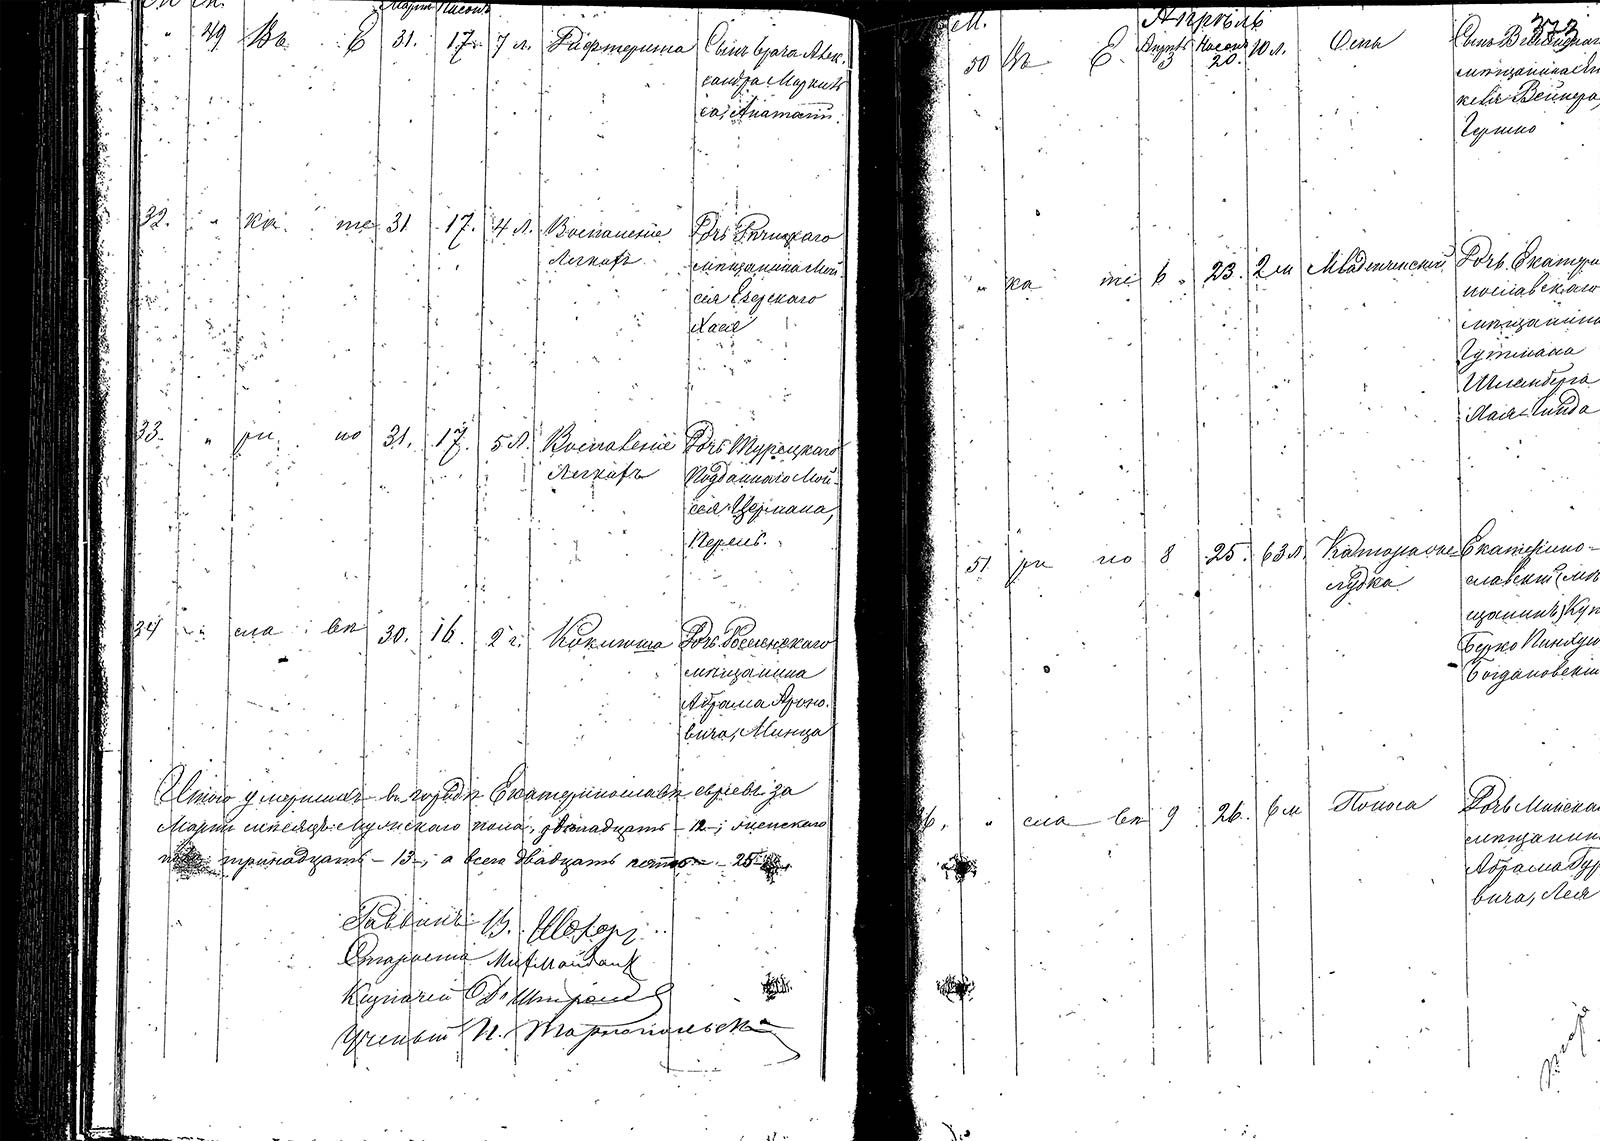 Мартъ Нисонъ
" 49 Въ Е 31. 17. 7 л. Дифтерита Сынъ врача Алек-
сандра Маркив
са, Анатолій.
32. " ка те 31 17. 4 л. Воспаленіе Дочь Рѣчицкаго
Легкихъ мѣщанина Мой-
сея Езерскаго
Хася
33. " ри но 31. 17. 5 л. Воспаленіе Дочь Турецкаго
Легкихъ Подданнаго Мой-
сея Цермана,
Перль.
34 " сла вѣ 30. 16. 2 г. Коклюша Дочь Россіенскаго
мѣщанина
Абрама Ароно-
вича, Минца
Итого умершихъ въ городѣ Екатеринославѣ евреевъ за
Мартъ мѣсяцъ: мужскаго пола, двѣнадцать - 12 -; женскаго
пола тринадцать - 13 -, а всего двадцать пять - 25
Раввинъ В. Шохоръ
Староста Маймонъ
Казначей
Ученый И. Тарнопольскій
М. Апрѣль 373
50 Въ Е. 3 Нисонъ 20. 10 л. Оспы Сынъ
мѣщанина
Вейнера,
Гершко
" ка те 6 " 23. 2 м Младенческій Дочь Екатери
нославскаго
мѣщанина
Гутмана
Шлемберга
Хая-Линда
51 ри но 8 25. 63 л. Каторально Екатерино-
славскій (мѣ
щанинъ) Куп
Берко Пинхус
Богдановскій
36. " сла вѣ 9 26. 6 м Поноса Дочь Минска
мѣщанин
Абрама Гур
вича, Лея